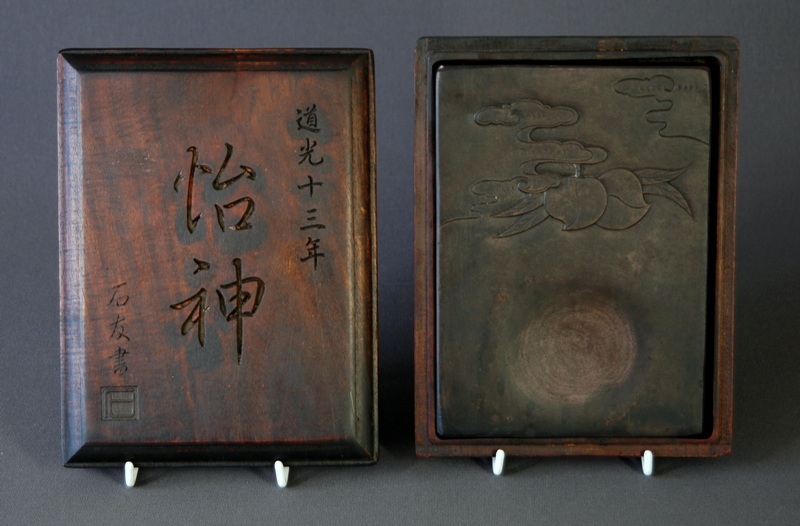 道光十三年
怡神
石友書